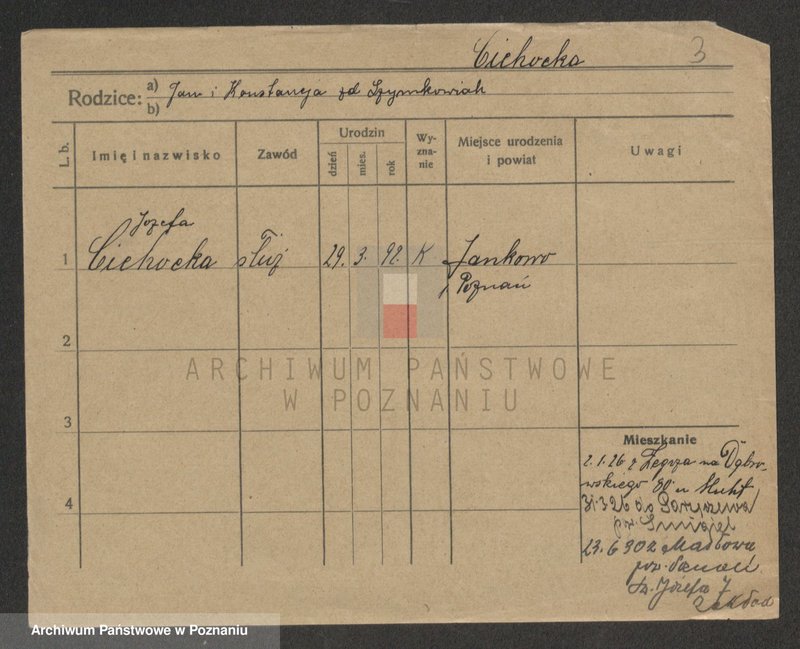 Cichocka 3
Rodzice: a) b) Jan i Konstancja zd Szymkowiak
L. b. Imię i nazwisko Zawód Urodzin dzień mies. rok Wy-zna-nie Miejsce urodzenia i powiat Uwagi
Józefa
1 Cichocka służ 29. 3. 92. K Jankowo
Poznań
2
ARCHIWUM PAŃSTWOWE
W POZNANIU
3
Mieszkanie
2.1.26 z Zegrza na Dąbro-
4 wskiego 80 u
31.3.26 do
pw. Śmigiel
23.6.30 z
pow.
św. Józefa 7
Zakład
Archiwum Państwowe w Poznaniu